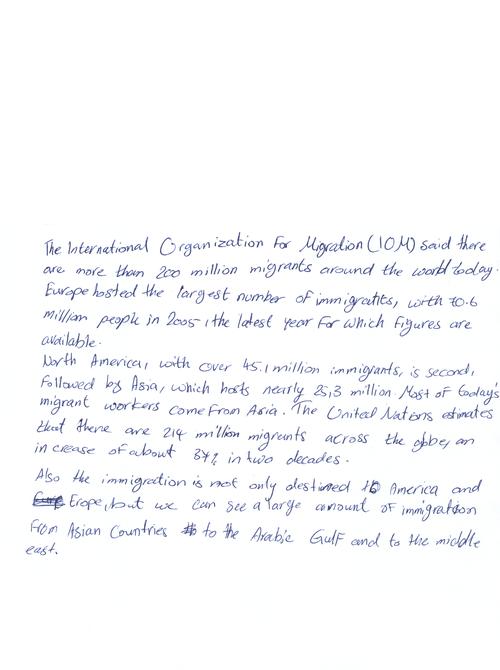 The International Organization For Migration (IOM) said there
are more than 200 million migrants around the world today.
Europe hosted the largest number of immigrants, with 70.6
million people in 2005, the latest year For which figures are
available.
North America, with over 45.1 million immigrants, is second,
Followed by Asia, which hosts nearly 25,3 million. Most of today's
migrant workers come From Asia. The United Nations estimates
that there are 214 million migrants across the globe, an
in crease of about 37% in two decades.
Also the immigration is not only destined to America and
Erope, but we can see a large amount of immigration
From Asian Countries to the Arabic Gulf and to the middle
east.